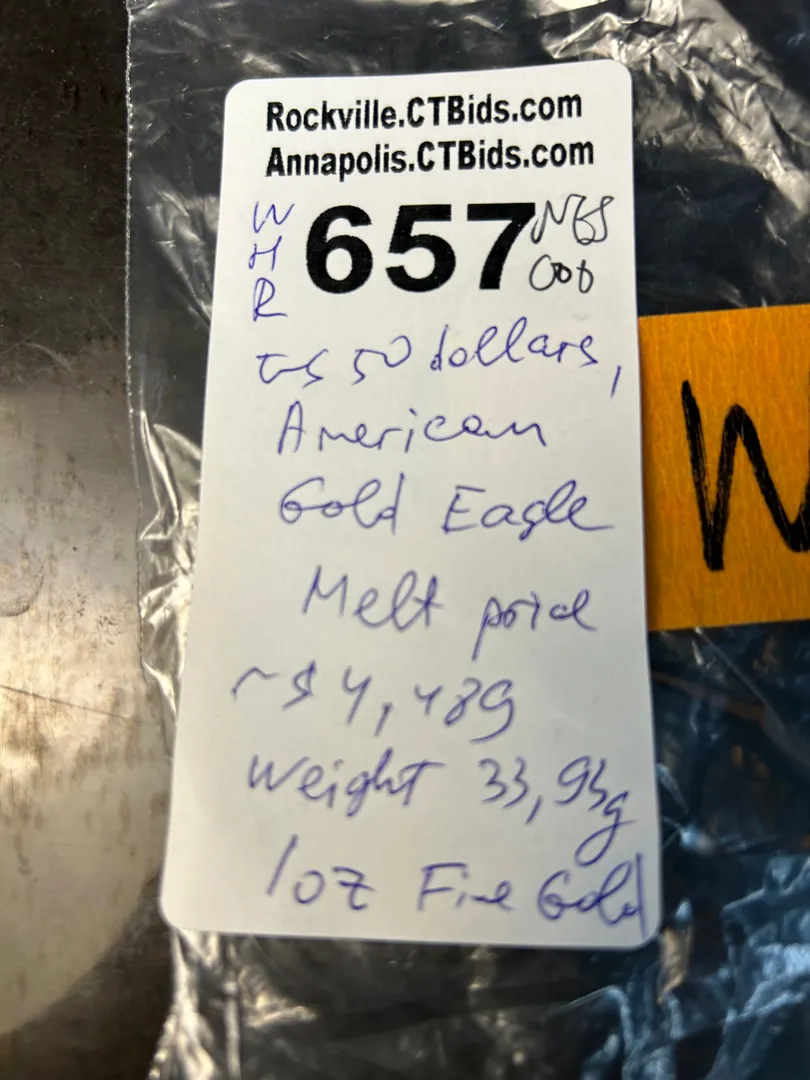 Rockville.CTBids.com
Annapolis.CTBids.com
WHR
657
US 50 dollars,
American
Gold Eagle
Melt price
~$4,489
Weight 33,93g
1oz Fine Gold
W